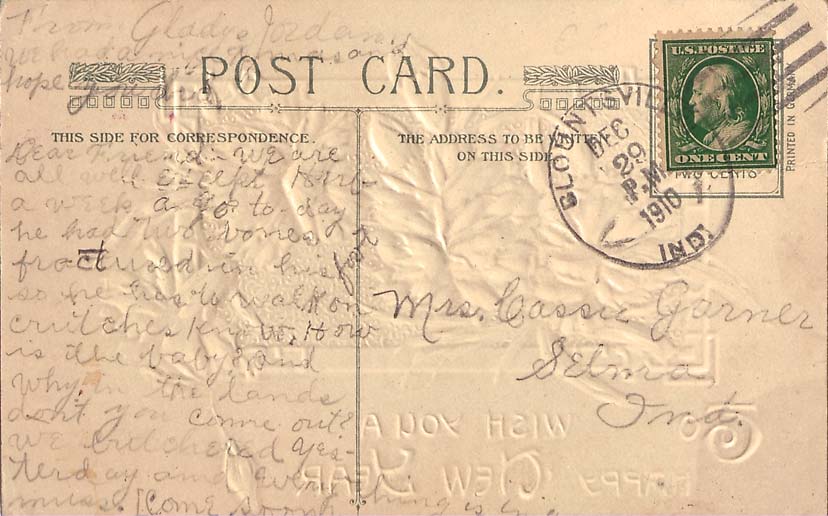 From Gladys Jordan
We had a nice Xmas and
hope you did
POST CARD.
THIS SIDE FOR CORRESPONDENCE.
THE ADDRESS TO BE WRITTEN
ON THIS SIDE
Dear Friend - We are
all well except
a week ago to day
he had two bones
fractured in his foot
so he has to walk on
crutches know. How
is the baby? and
why in the lands
dont you come out?
we butchered yes-
terday and everything is in a
muss. [Come soon
Mrs. Cassie Garner
Selma,
Ind.
U.S. POSTAGE
ONE CENT
TWO CENTS
PRINTED IN GERMANY
BLOUNTSVILLE
DEC
29
P.M.
1910
IND.
1
WISH YOU A
HAPPY NEW YEAR